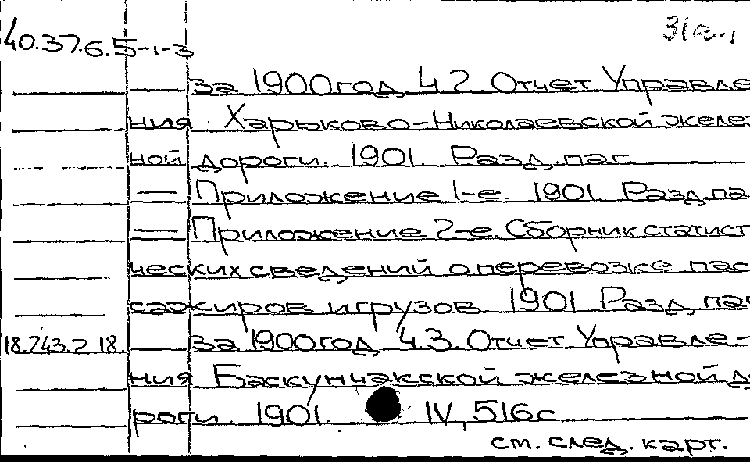 40.37.6.5-1-3
за 1900 год, ч.2. Отчет Управле-
ния Харьково-Николаевской желез
ной дороги. 1901. Разд.паг.
— Приложение 1-е. 1901. Разд.па
— Приложение 2-е. Сборник статист
ческих сведений о перевозке пас
сажиров и грузов. 1901. Разд. паг
18.243.2.18. — за 1900 год, ч.3. Отчет Управле-
ния Баскунчакской железной до
роги. 1901. IV, 516с
см. след. карт.